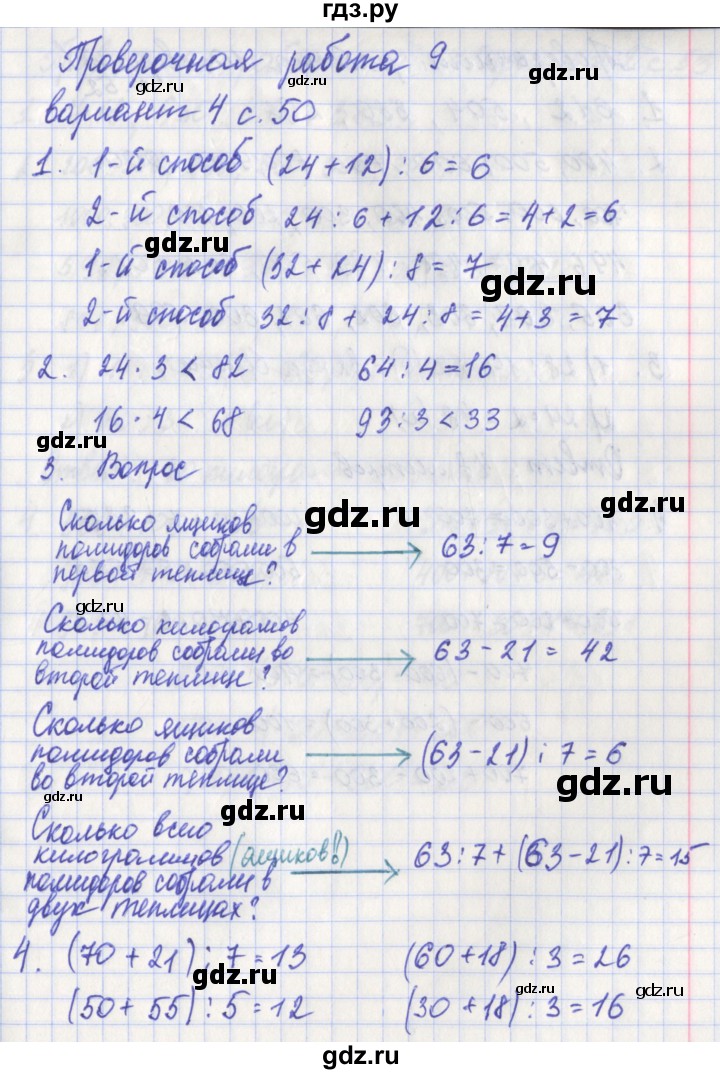 гдз.ру
Проверочная работа 9
gdz.ru
gdz.ru
вариант 4 с. 50
1. 1-й способ (24+12) : 6 = 6
2-й способ 24 : 6 + 12 : 6 = 4+2 = 6
gdz.ru
1-й способ (32+24) : 8 = 7
gdz.ru
2-й способ 32 : 8 + 24 : 8 = 4+3 = 7
gdz.ru
2. 24 · 3 < 82 64 : 4 = 16
16 · 4 < 68 93 : 3 < 33
gdz.ru
gdz.ru
3. Вопрос
gdz.ru
gdz.ru
Сколько ящиков
помидоров собрали в → 63 : 7 = 9
первой теплице?
gdz.ru
Сколько килограмов
gdz.ru
помидоров собрали во → 63 - 21 = 42
второй теплице?
gdz.ru
Сколько ящиков
помидоров собрали → (63-21) : 7 = 6
во второй теплице?
gdz.ru
gdz.ru
gdz.ru
Сколько всего
килограммов (ящиков!) → 63 : 7 + (63-21) : 7 = 15
помидоров собрали в
gdz.ru
двух теплицах?
4. (70 + 21) : 7 = 13 (60+18) : 3 = 26
gdz.ru
gdz.ru
(50 + 55) : 5 = 12 (30 + 18) : 3 = 16
gdz.ru